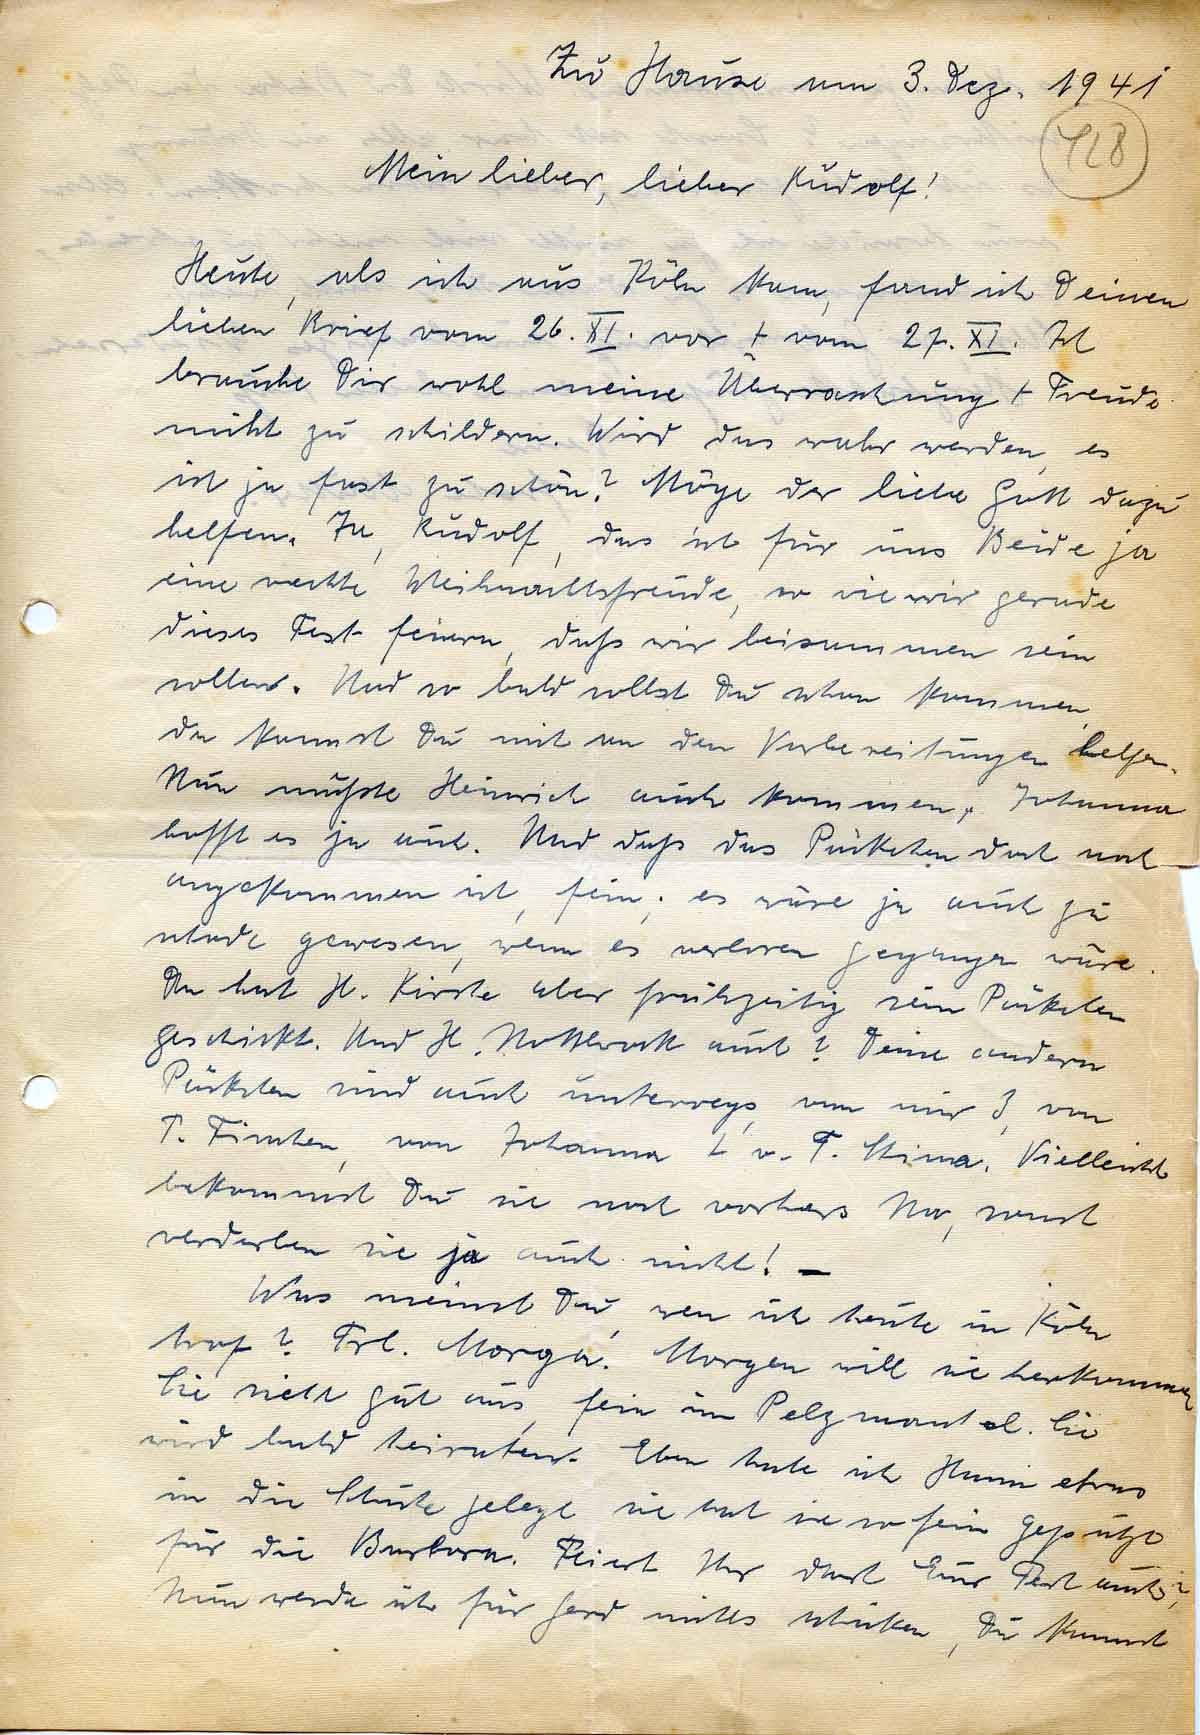 Zu Hause am 3. Dez. 1941
428
Mein lieber, lieber Rudolf!
Heute, als ich aus Köln kam, fand ich Deinen
lieben Brief vom 26. XI. vor + vom 27. XI. Ich
brauche Dir wohl meine Überraschung + Freude
nicht zu schildern. Wird das wahr werden, es
ist ja fast zu schön? Möge der liebe Gott dazu
helfen. Ja, Rudolf, das ist für uns Beide ja
eine rechte Weihnachtsfreude, so wie wir gerade
dieses Fest feiern, daß wir beisammen sein
sollen. Und so bald sollst Du schon kommen,
da kannst Du mit an den Vorbereitungen helfen.
Nun müßte Heinrich auch kommen, Johanna
hofft es ja auch. Und daß das Päckchen doch noch
angekommen ist, fein; es wäre ja auch zu
schade gewesen, wenn es verloren gegangen wäre.
Da hat H. Kirste aber frühzeitig sein Päckchen
geschickt. Und H. Nottbrock auch? Deine andern
Päckchen sind auch unterwegs, von mir 3, von
T. Finchen, von Johanna + v. T. Stina. Vielleicht
bekommst Du sie noch vorher, sonst
verderben sie ja auch nicht! –
Was meinst Du, wen ich heute in Köln
traf? Frl. Morga. Morgen will sie herkommen
Sie sieht gut aus, fein im Pelzmantel. Sie
wird bald heiraten. Eben habe ich Hanni etwas
in die Schuhe gelegt sie hat sie so fein geputzt
für die Barbara. Feiert Ihr dort Eur Fest auch?
Nun werde ich für Gerd nichts schicken, Du kannst